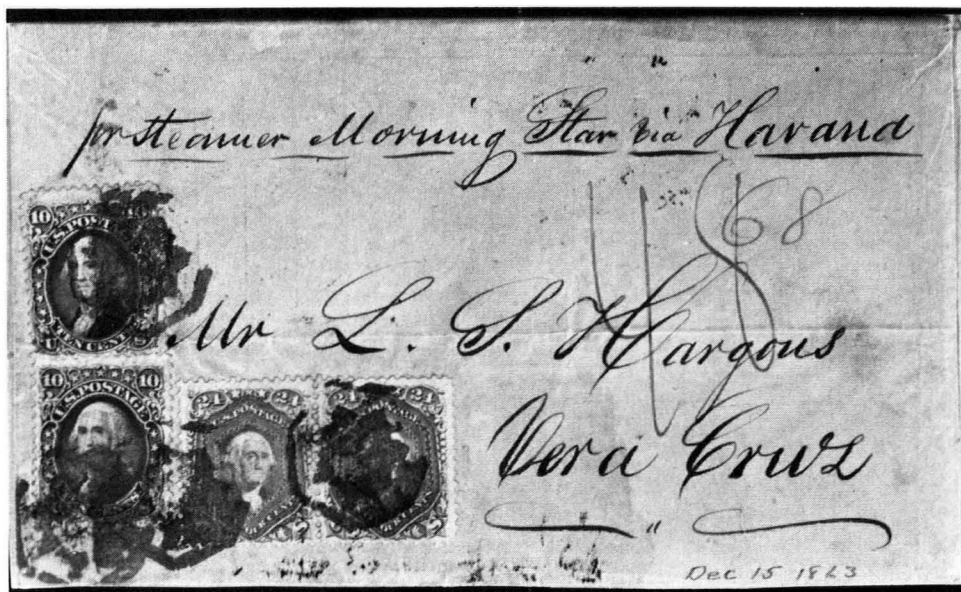 per steamer Morning Star via Havana
68
48
Mr L. S. Hargous
Vera Cruz
"
Dec 15 1863
10 10
U.S. POST
10 10
U.S. POSTAGE
24 24
U.S. POSTAGE
24 24